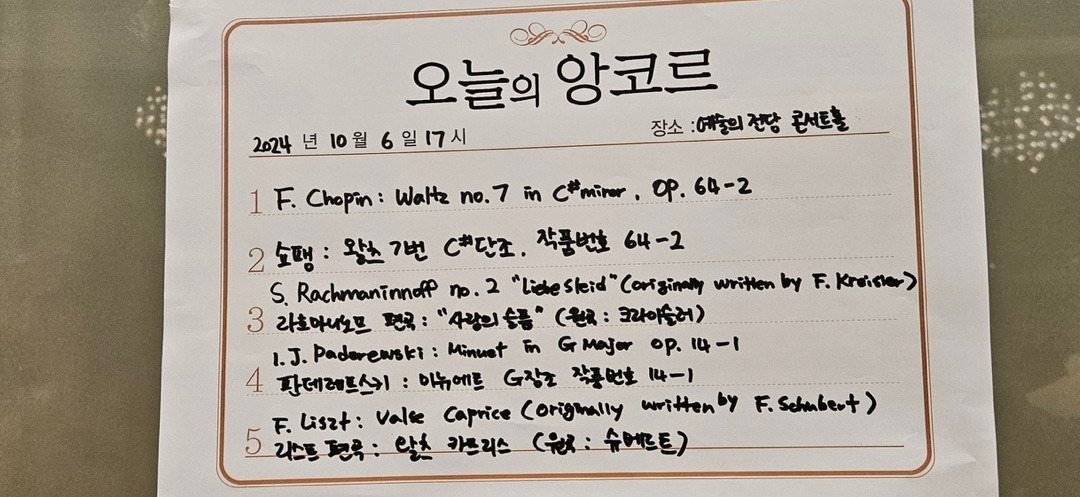 오늘의 앙코르
2024 년 10 월 6 일 17 시 장소 : 예술의 전당 콘서트홀
1 F. Chopin : Waltz no. 7 in C# minor, OP. 64-2
2 쇼팽 : 왈츠 7번 C#단조, 작품번호 64-2
S. Rachmaninnoff no. 2 "Liebesleid" (originally written by F. Kreisler)
3 라흐마니노프 편곡 : "사랑의 슬픔" (원곡 : 크라이슬러)
I. J. Paderewski : Minuet in G Major OP. 14-1
4 판데레프스키 : 미뉴에트 G장조 작품번호 14-1
F. Liszt : Valse Caprice (originally written by F. Schubert)
5 리스트 편곡 : 왈츠 카프리스 (원곡 : 슈베르트)